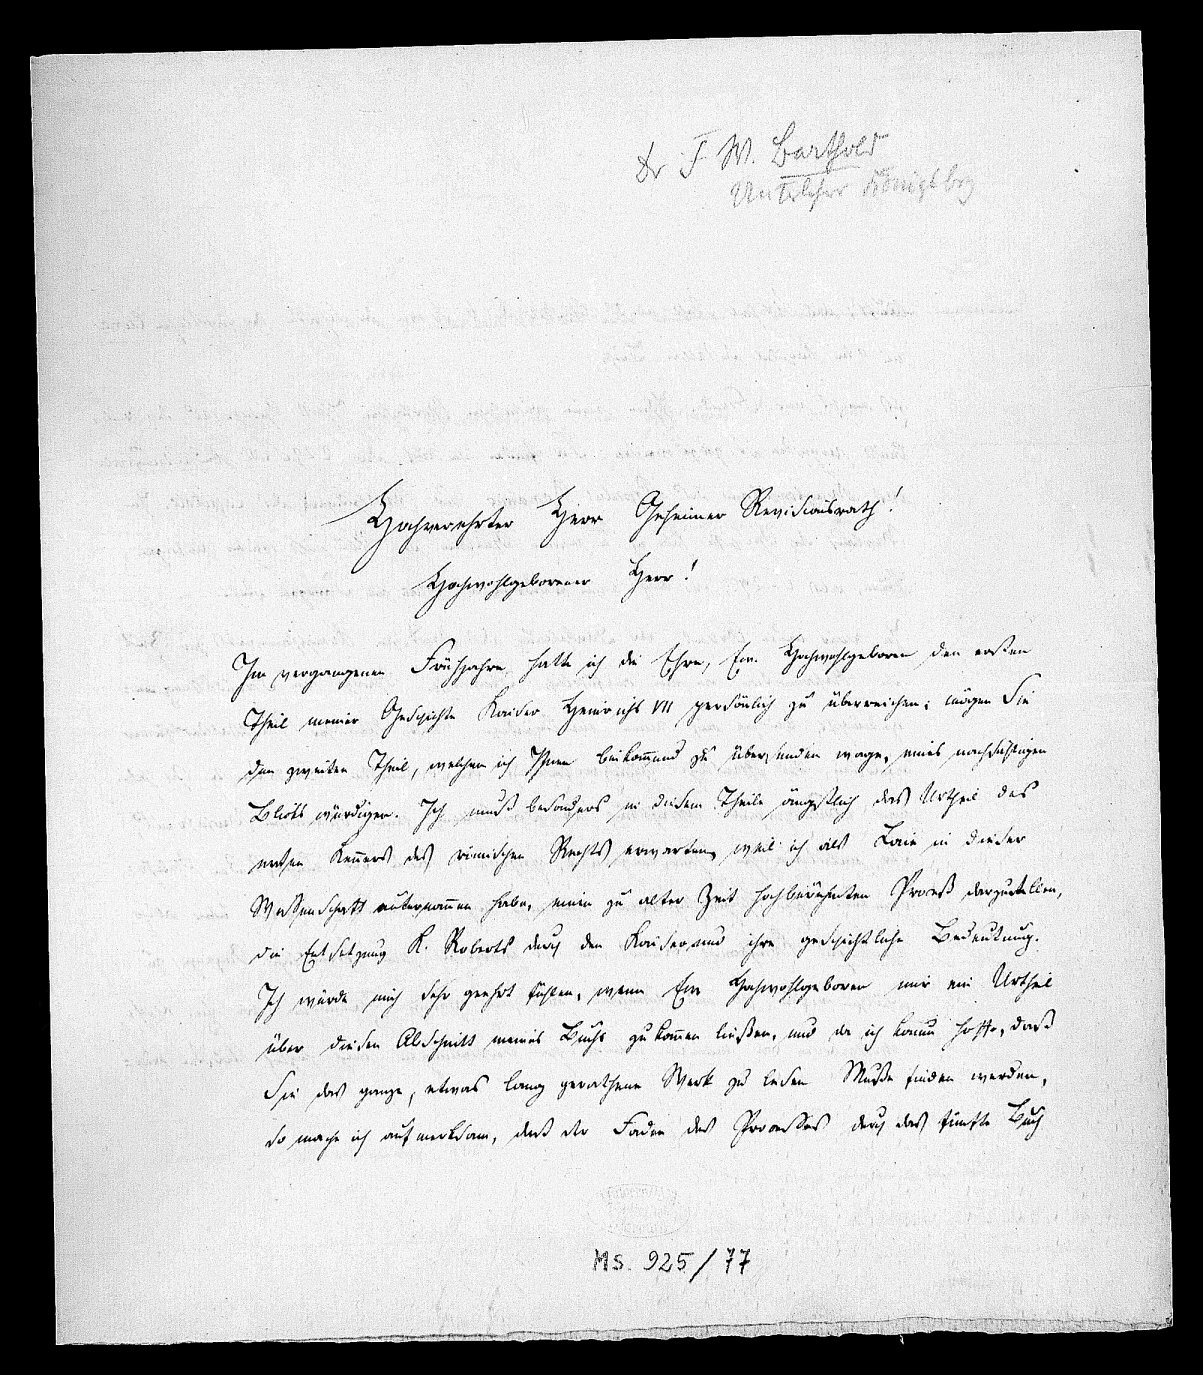 Dr F. W. Barthold
Königsbrg
Hochverehrter Herr Geheimer Revisionsrath!
Hochwohlgeborener Herr!
Im vergangenen Frühjahre, hatte ich die Ehre, Ew. Hochwohlgeboren den ersten
Theil meiner Geschichte Kaiser Heinrichs VII persönlich zu überreichen; mögen Sie
den zweiten Theil, welchen ich Ihnen beikom̄end zu übersenden wage, eines nachsichtigen
Blicks würdigen. Ich muß besonders in diesem Theile ängstlich das Urtheil des
ersten Ken̄ers des römischen Rechts erwarten, weil ich als Laie in dieser
Wissenschaft unternom̄en habe, einen zu alter Zeit hochberühmten Proceß darzustellen,
die Entsetzung K. Roberts durch den Kaiser und ihre geschichtliche Bedeutung.
Ich würde mich sehr geehrt fühlen, wenn Ew Hochwohlgeboren mir ein Urtheil
über diesen Abschnitt meines Buchs zukom̄en ließen, und da ich kaum hoffe, daß
Sie das ganze, etwas lang gerathene Werk zu lesen Muße finden werden,
so mache ich aufmerksam, daß der Faden des Processes durch das fünfte Buch
Ms. 925/77